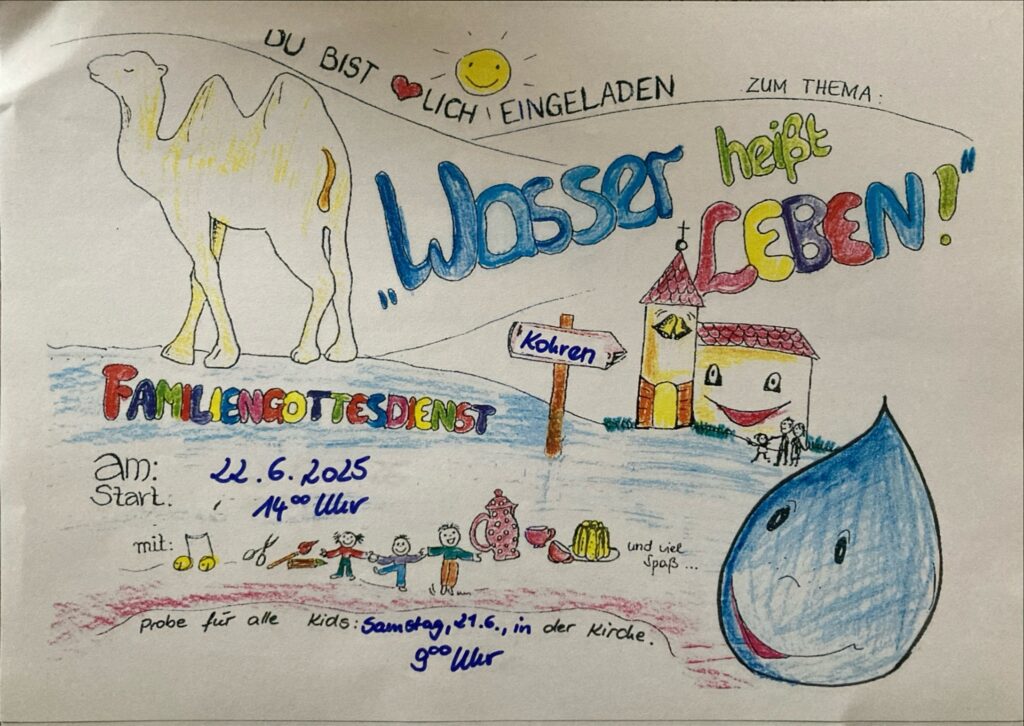 DU BIST ❤LICH EINGELADEN
ZUM THEMA:
„Wasser heißt
LEBEN!“
Kohren
FAMILIENGOTTESDIENST
am: 22.6.2025
Start: 14⁰⁰ Uhr
mit:
und viel
Spaß...
Probe für alle Kids: Samstag, 21.6., in der Kirche.
9⁰⁰ Uhr